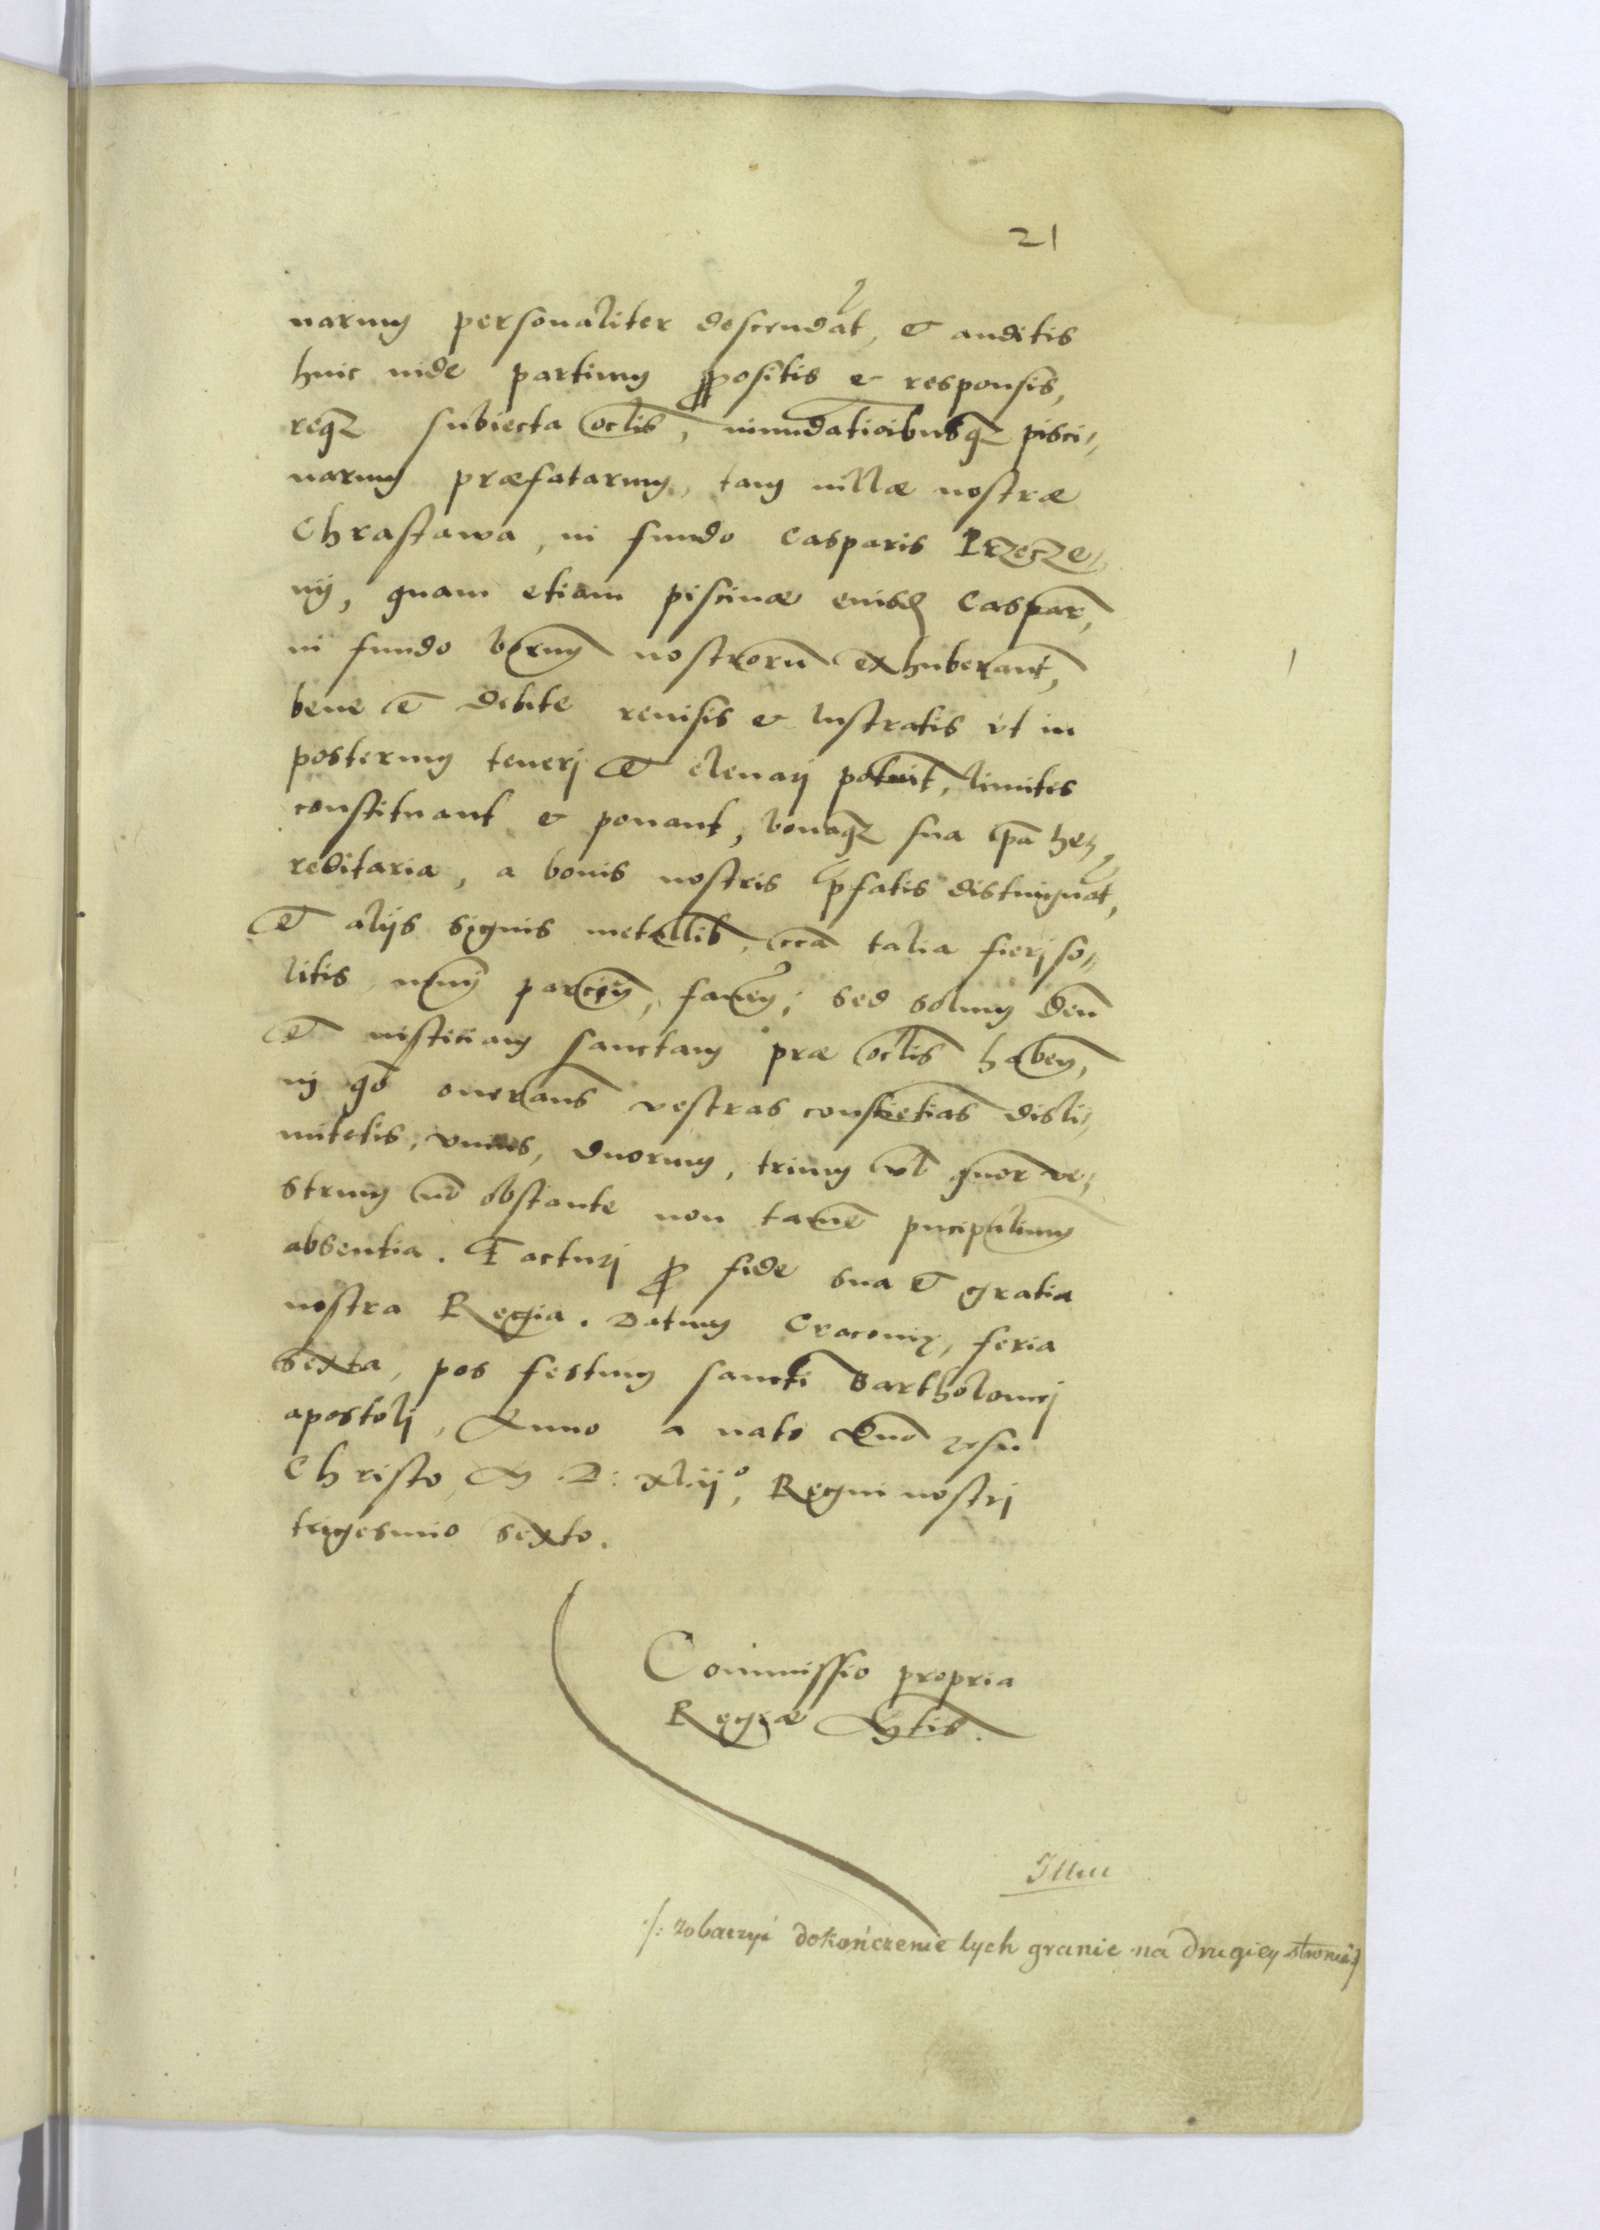 21
narum personaliter descendāt, & auditis
hinc inde partium ꝓpositis & responsis,
reqꝫ subiecta oclis, inundatioibusqꝫ pisci,
narum præfatarum, tam villæ nostræ
Chrastawa, in fundo Casparis Przecze,
nij, quam etiam piscinæ eiusd Caspar,
in fundo boru nostroru exhuberant,
bene et debite reuisis & lustratis vt in
posterum teneri et eleuari potuit, limites
constituant & ponant, bonaqꝫ sua ipa he,
reditaria, a bonis nostris pfatis distinguat,
et alijs signis metalib, cca talia fieri so,
litis, nemi parcium, fauen; sed solum Deu
et iusticiam sanctam præ oclis haben,
in qo onerans vestras conscietias disli,
mitetis, vnius, duorum, trium vl quor ve,
strum no obstante non tamē pncipalium
absentia. Facturi ꝓ fide sua et gratia
nostra Regia. Datum Cracouię, feria
sexta, pos festum sancti Bartholomej
apostoli, Anno a nato Dno Jesu
Christo, M. D: xlijº, Regni nostri
trigesimo sexto.
Commissio propria
Regiæ Mtis.
/: zobaczyć dokończenie tych granic na drugiey stronie :/